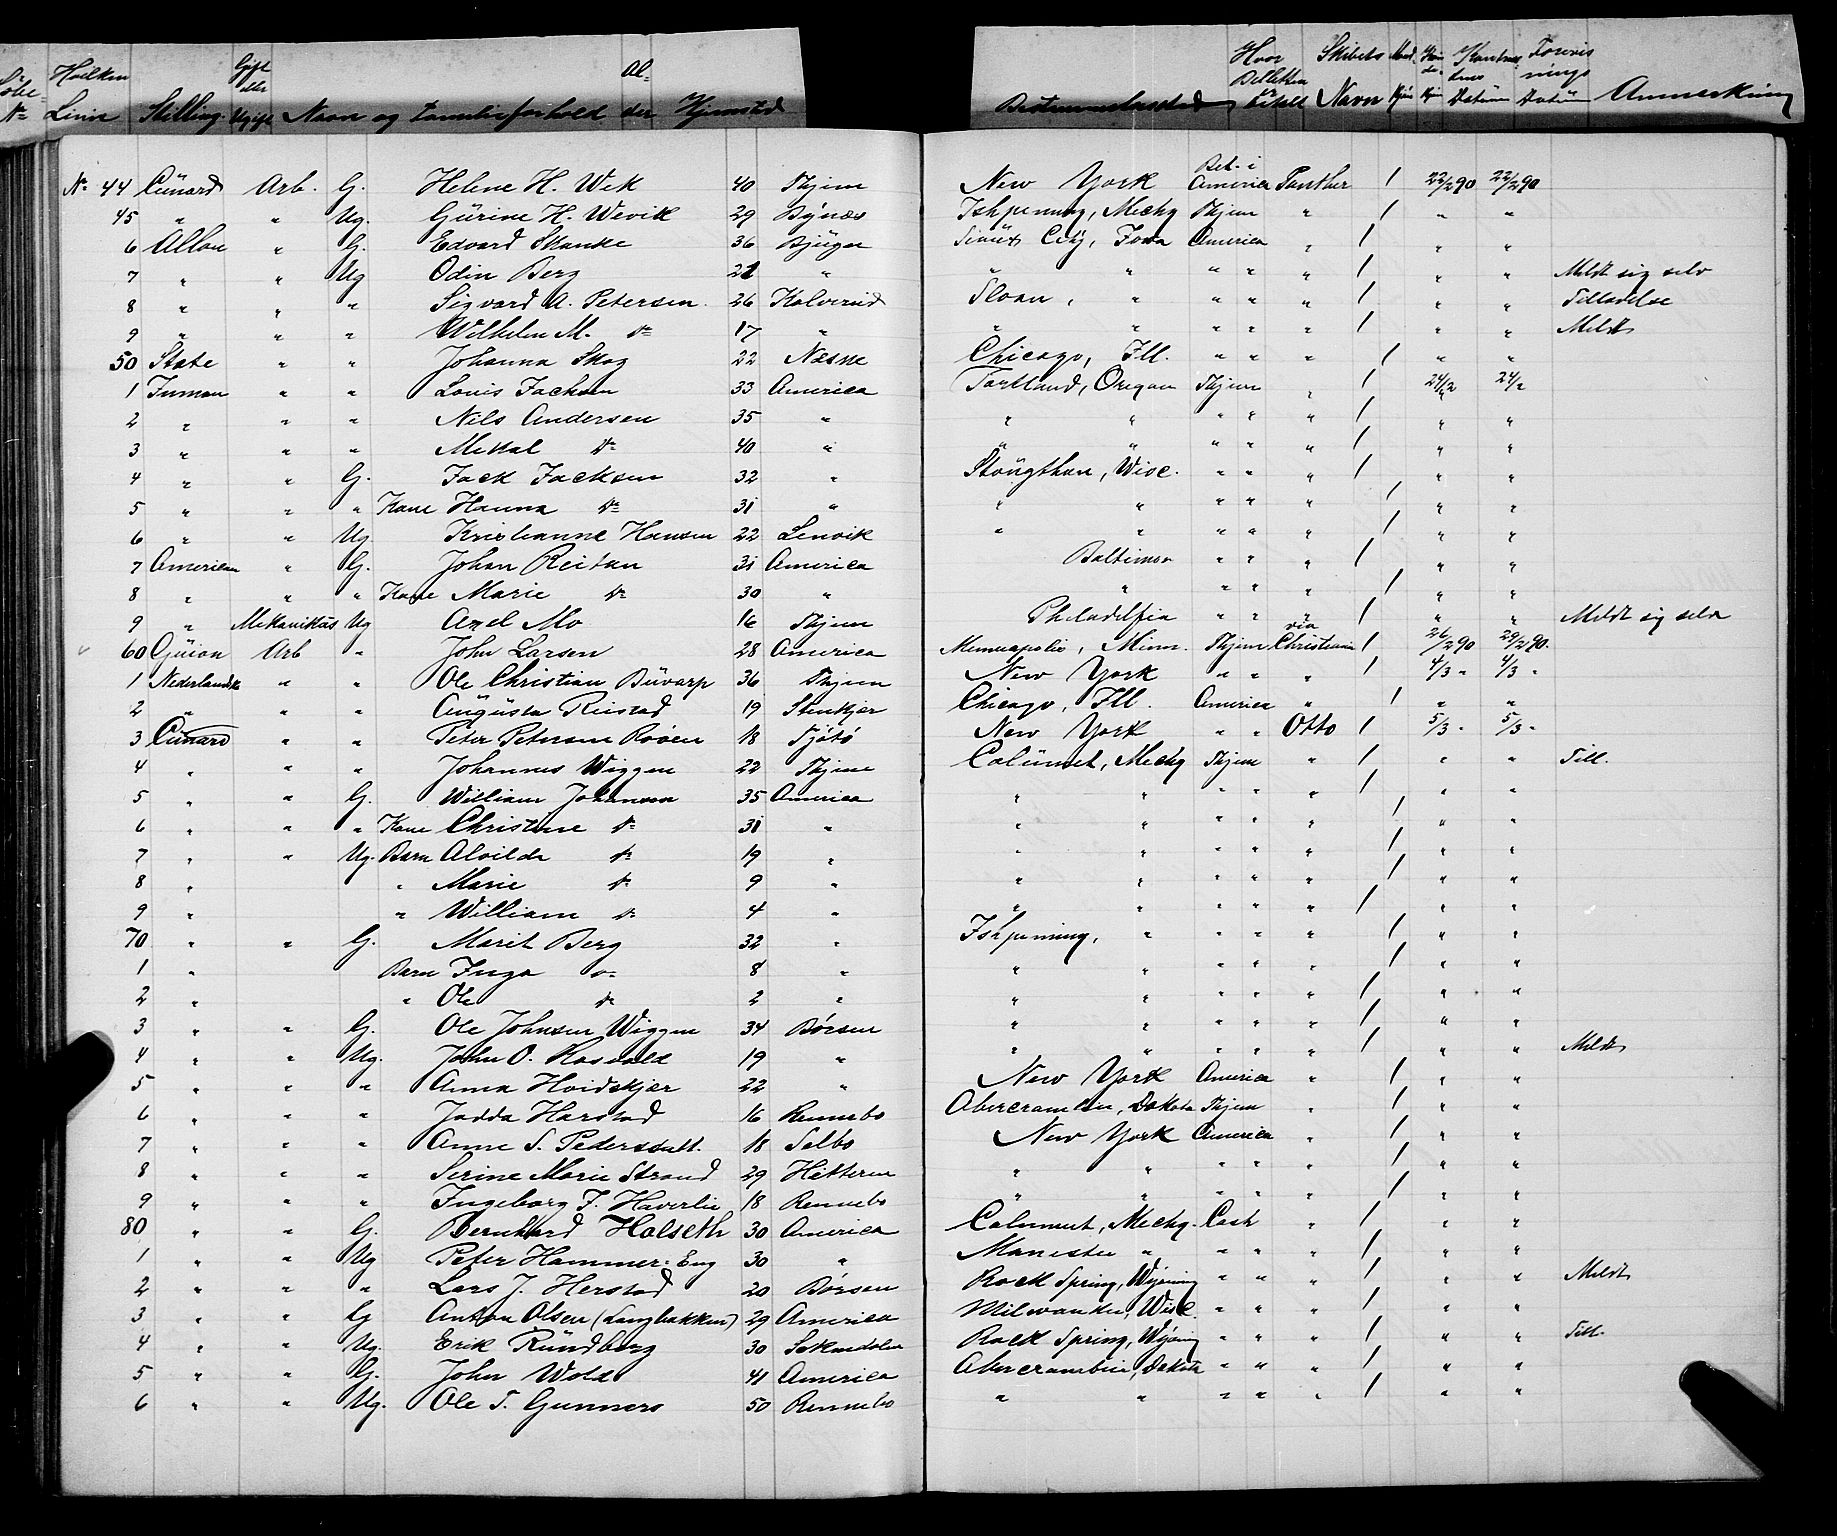 Löbe- Hvilken Gift Al-
No Linie Stilling eller Ugift Navn og Familieforhold der Hjemsted Bestemmelsessted Hvor Billetten er betalt Skibets Navn Mand Kjön Kvinde Kjön Kontrakt Datum Forevisnings Datum Anmerkning
No 44 Cünard Arb. G. Helene H. Wek 40 Thjem New York Bet. i America Panther 1 22/2 90 22/2 90
45 " " Ug. Gürine H. Wevik 29 Bÿnæs Ishpeming, Mechg Thjem " 1 " "
6 Allan " G. Edvard Skanke 36 Bjügn Sioüx City, Iowa America " 1 " "
7 " " Ug Odin Berg 21 " " " " " " 1 " " Meldt sig selv
8 " " " Sigvard A. Petersen 26 Kolvereid Sloan, " " " " 1 " " Tilladelse
9 " " " Wilhelm M. do 17 " " " " " " 1 " " Meldt
50 State " " Johanna Skog 22 Næsne Chicago, Ill. " " " 1 " "
1 Inman " " Louis Jackson 33 America Portland, Oregon Thjem " 1 24/2 24/2
2 " " " Nils Andersen 35 " " " " " " 1 " "
3 " " " Mikal do 40 " " " " " " 1 " "
4 " " G. Jack Jacksen 32 " Stoügthon, Wisc. " " " 1 " "
5 " " " Kone Hanna do 31 " " " " " " 1 " "
6 " " Ug. Kristianne Hansen 22 Lenvik " " " " 1 " "
7 American " G. Johan Reitan 31 America Baltimor " " " 1 " "
8 " " " Kone Marie do 30 " " " " " 1 " "
9 " Mekanikus Ug Axel Mo 16 Thjem Philadelfia " " " 1 " " Meldt sig selv
60 Güion Arb " John Larsen 28 America Minneapolis, Minn. Thjem via Christiania 1 26/2 90 29/2 90.
1 Nederlandsk " " Ole Christian Büvarp 36 Thjem New York " " " 1 4/3 " 4/3 "
2 " " " Aügüsta Reistad 19 Stenkjer Chicago, Ill. America " 1 " "
3 Cünard " " Peter Petersen Röven 18 Tjötö New York " " Otto 1 5/3 " 5/3 "
4 " " " Johannes Wiggen 22 Thjem Calümet, Mechg Thjem " 1 " " Till.
5 " " G. William Johansen 35 America " " " " " 1 " "
6 " " " Kone Christine do 31 " " " " " " 1 " "
7 " " Ug. Barn Alvilde do 19 " " " " " " 1 " "
8 " " Marie do 9 " " " " " " 1 " "
9 " " William do 4 " " " " " " 1 " "
70 " " G. Marit Berg 32 " Ishpeming, " " " " 1 " "
1 " Barn Inga do 8 " " " " " " 1 " "
2 " " Ole do 2 " " " " " " 1 " "
3 " " G. Ole Johnsen Wiggen 34 Börsen " " " " " 1 " "
4 " " Ug. John O. Hasvold 19 " " " " " " 1 " " Meldt
5 " " " Anna Hoidskjer 22 " New York America " 1 " "
6 " " " Jadda Harstad 16 Rennebo Abercrambie, Dakota Thjem " 1 " "
7 " " " Anne S. Pedersdatt. 18 Selbo New York America " 1 " "
8 " " " Serine Marie Strand 29 Hitteren " " " " " 1 " "
9 " " " Ingeborg J. Haverlie 18 Rennebo " " " " " 1 " "
80 " " G. Bernhard Halseth 30 America Calumet, Mechg. Cash " 1 " "
1 " " Ug Peter Hammer-Eng 30 " Manistee " " " " 1 " "
2 " " " Lars J. Herstad 20 Börsen Rock Spring, Wÿoming " " " 1 " " Meldt
3 " " G Anton Olsen (Langbakken) 29 America Milwaukee, Wisc. " " " 1 " "
4 " " Ug. Erik Ründberg 30 Soknedalen Rock Spring, Wÿoming " " " 1 " " Till.
5 " " G. John Wold 41 America Abercrambie, Dakota " " " 1 " "
6 " " Ug. Ole T. Gunners 50 Rennebo " " " " " 1 " "